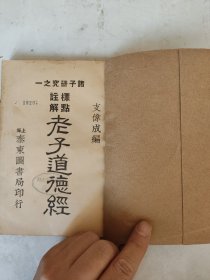 諸子研究之一
標點
註解
老子道德經
支偉成編
上海
泰東圖書局印行